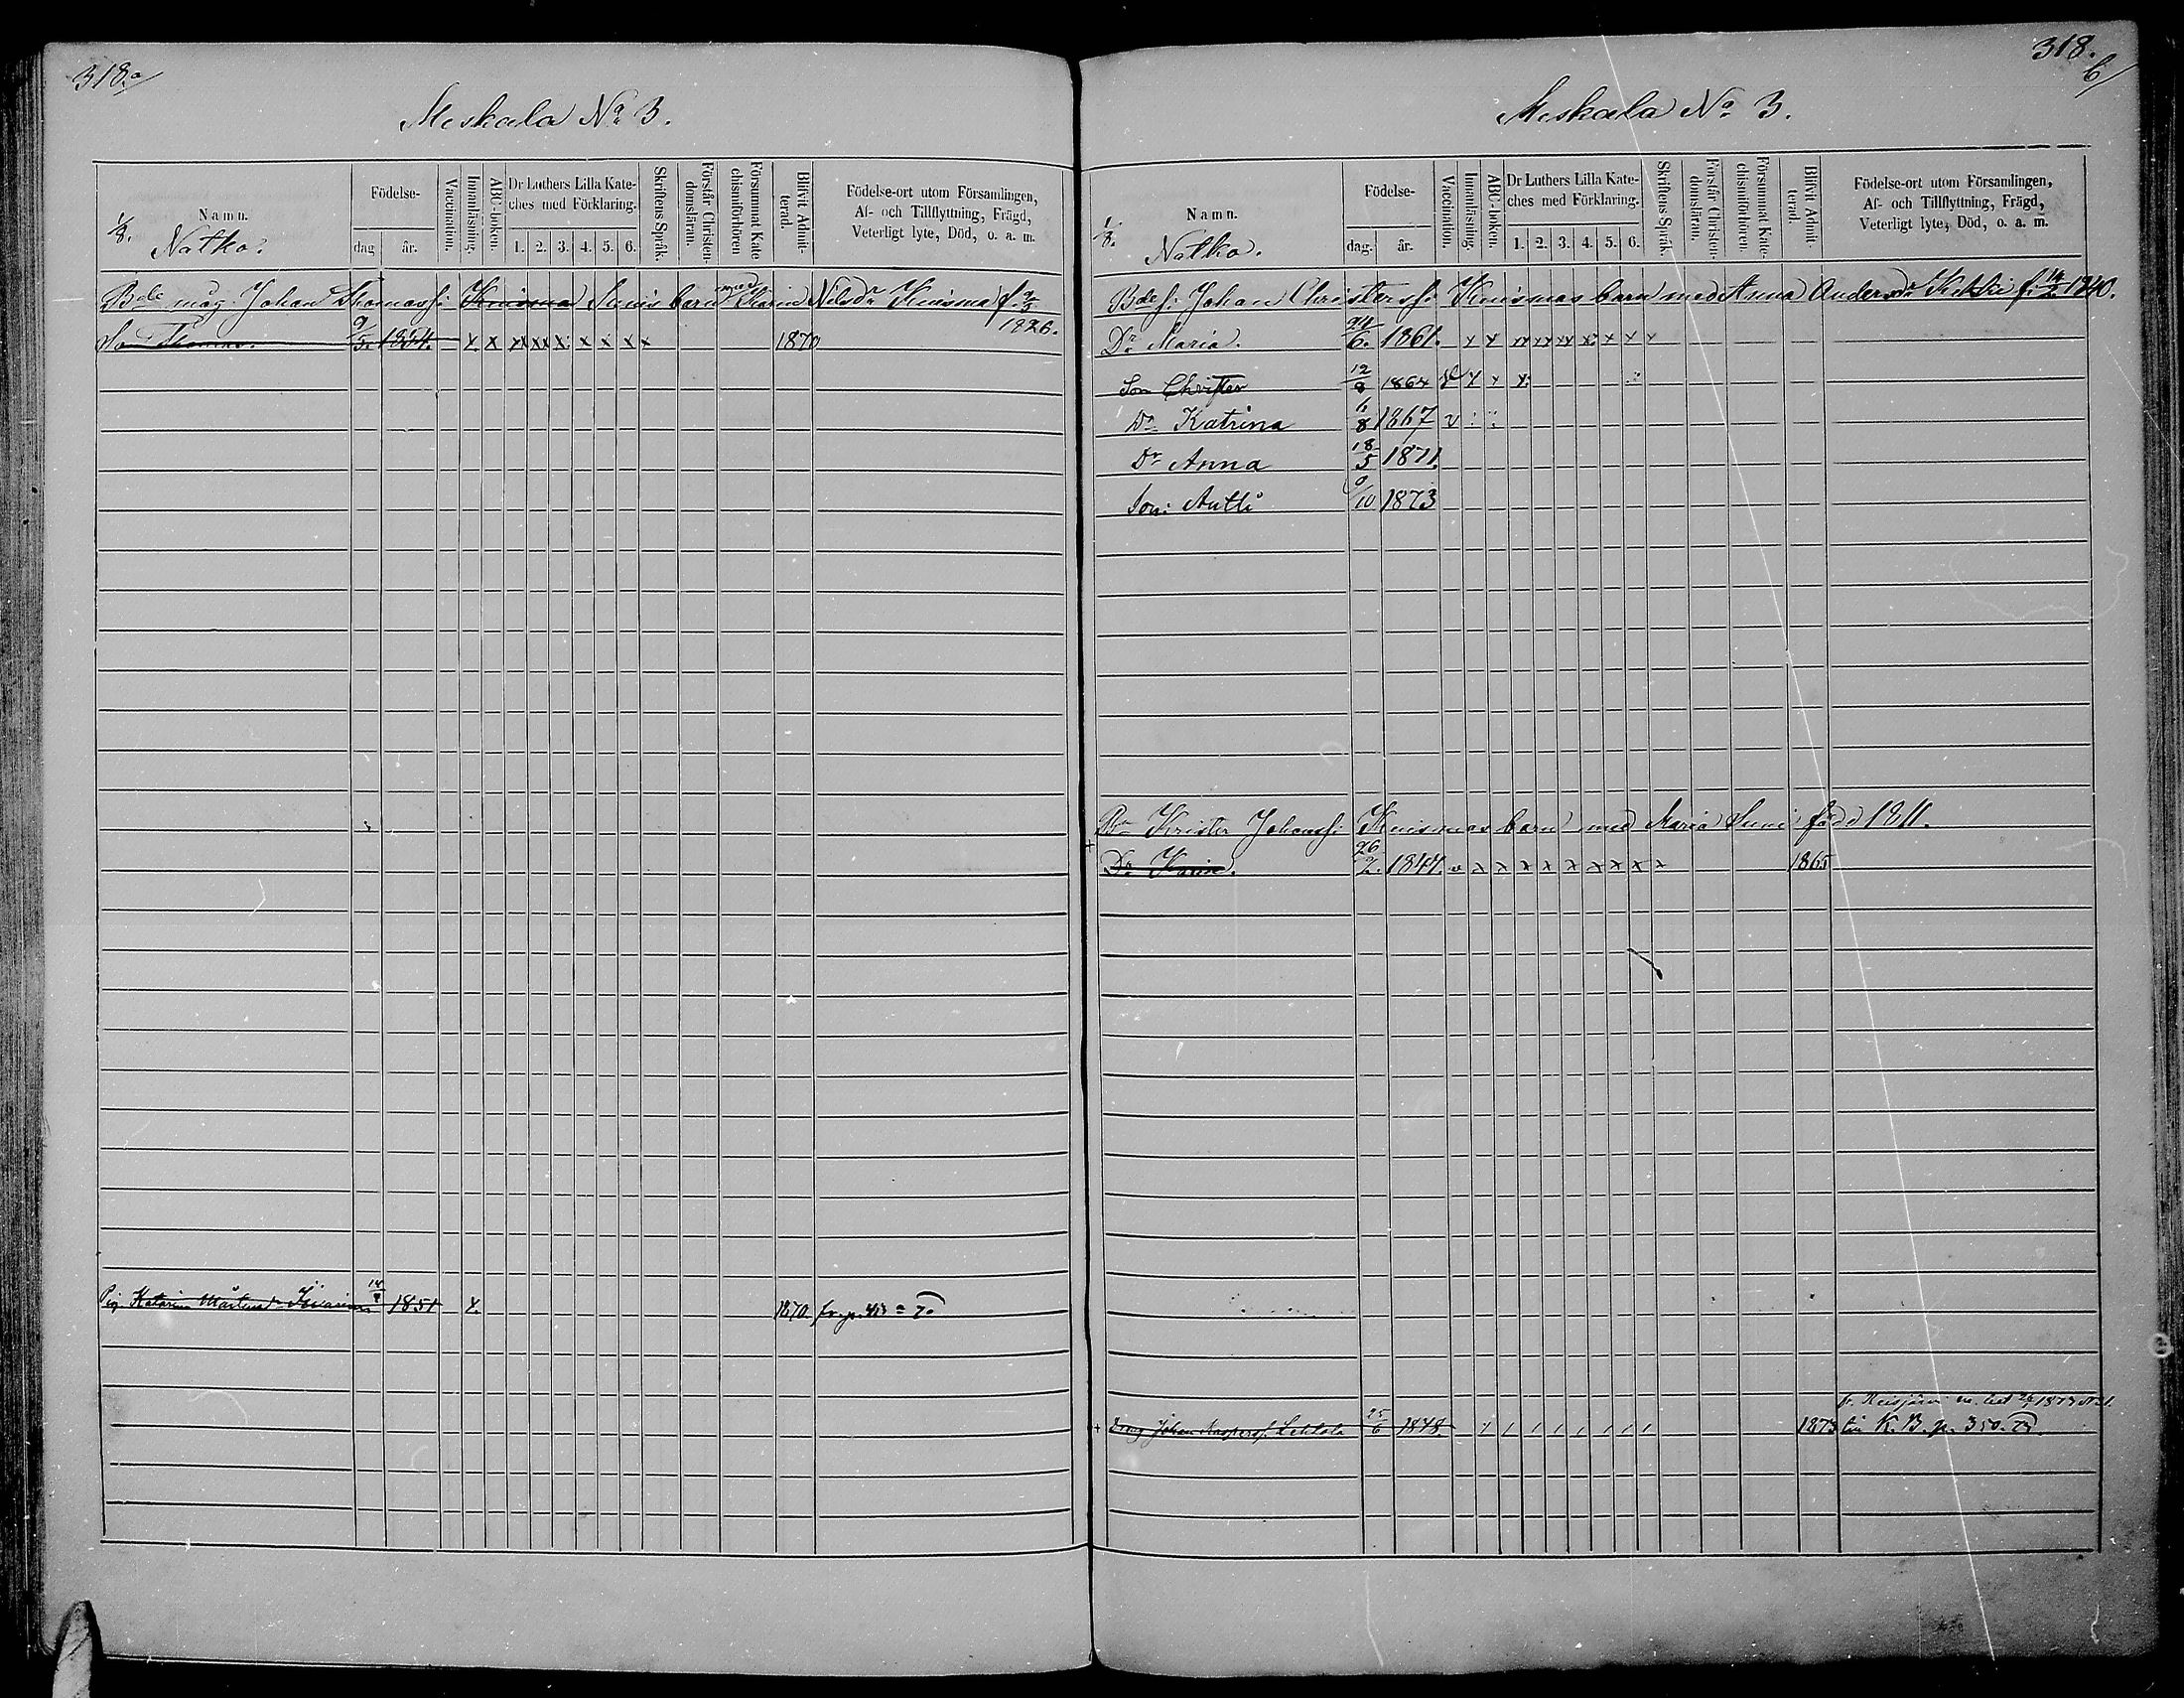 318.a/
Meskala No 3.
Namn.
Födelse-
dag
år.
Vaccination.
Innanläsning.
ABC-boken.
Dr Luthers Lilla Kate-
ches med Förklaring.
1. 2. 3. 4. 5. 6.
Skriftens Språk.
Förstår Christen-
domsläran.
Försummat Kate
chismiförhören
Blifvit Admit-
terad.
Födelse-ort utom Församlingen,
Af- och Tillflyttning, Frägd,
Veterligt lyte, Död, o. a. m.
1/8. Natko.
Bde måg Johan Thomass. Knisma Sunis barn med Karin Nilsdr Knisma f.
1826.
So Thomas. 9/5. 1854. x x xx xx x: x x x x 1870
Pig. Katarina 14 1851 x. 1870. fr. p.
318.
b/
Meskala No 3.
Namn.
Födelse-
dag.
år.
Vaccination.
Innanläsning.
ABC-boken.
Dr Luthers Lilla Kate-
ches med Förklaring.
1. 2. 3. 4. 5. 6.
Skriftens Språk.
Förstår Christen-
domsläran.
Försummat Kate-
chismiförhören.
Blifvit Admit-
terad.
Födelse-ort utom Församlingen,
Af- och Tillflyttning, Frägd,
Veterligt lyte, Död, o. a. m.
1/8. Natko.
Bde f. Johan Christerss. Knismas barn med Anna Andersdr f. 14/2 1840.
Dr Maria. 24/6. 1861. x x xx xxx xxx x: x x x
Son Christer 12/8 1864 x x x:
Dr Katrina 6/8 1867 v : :
Dr Anna 18/5 1871.
Son: Antti 9/10 1873
Bn Krister Johanss. Knismas barn med Maria Suni född 1811.
+ Dr Karin. 26/2. 1844. v x x x x x x x x x 1865
+ Dräng Johan Kaspersf. Lehtola 25/6 1848. 1873
fr. Reisjärvi m. bet 1873
till K. B. p. 350.